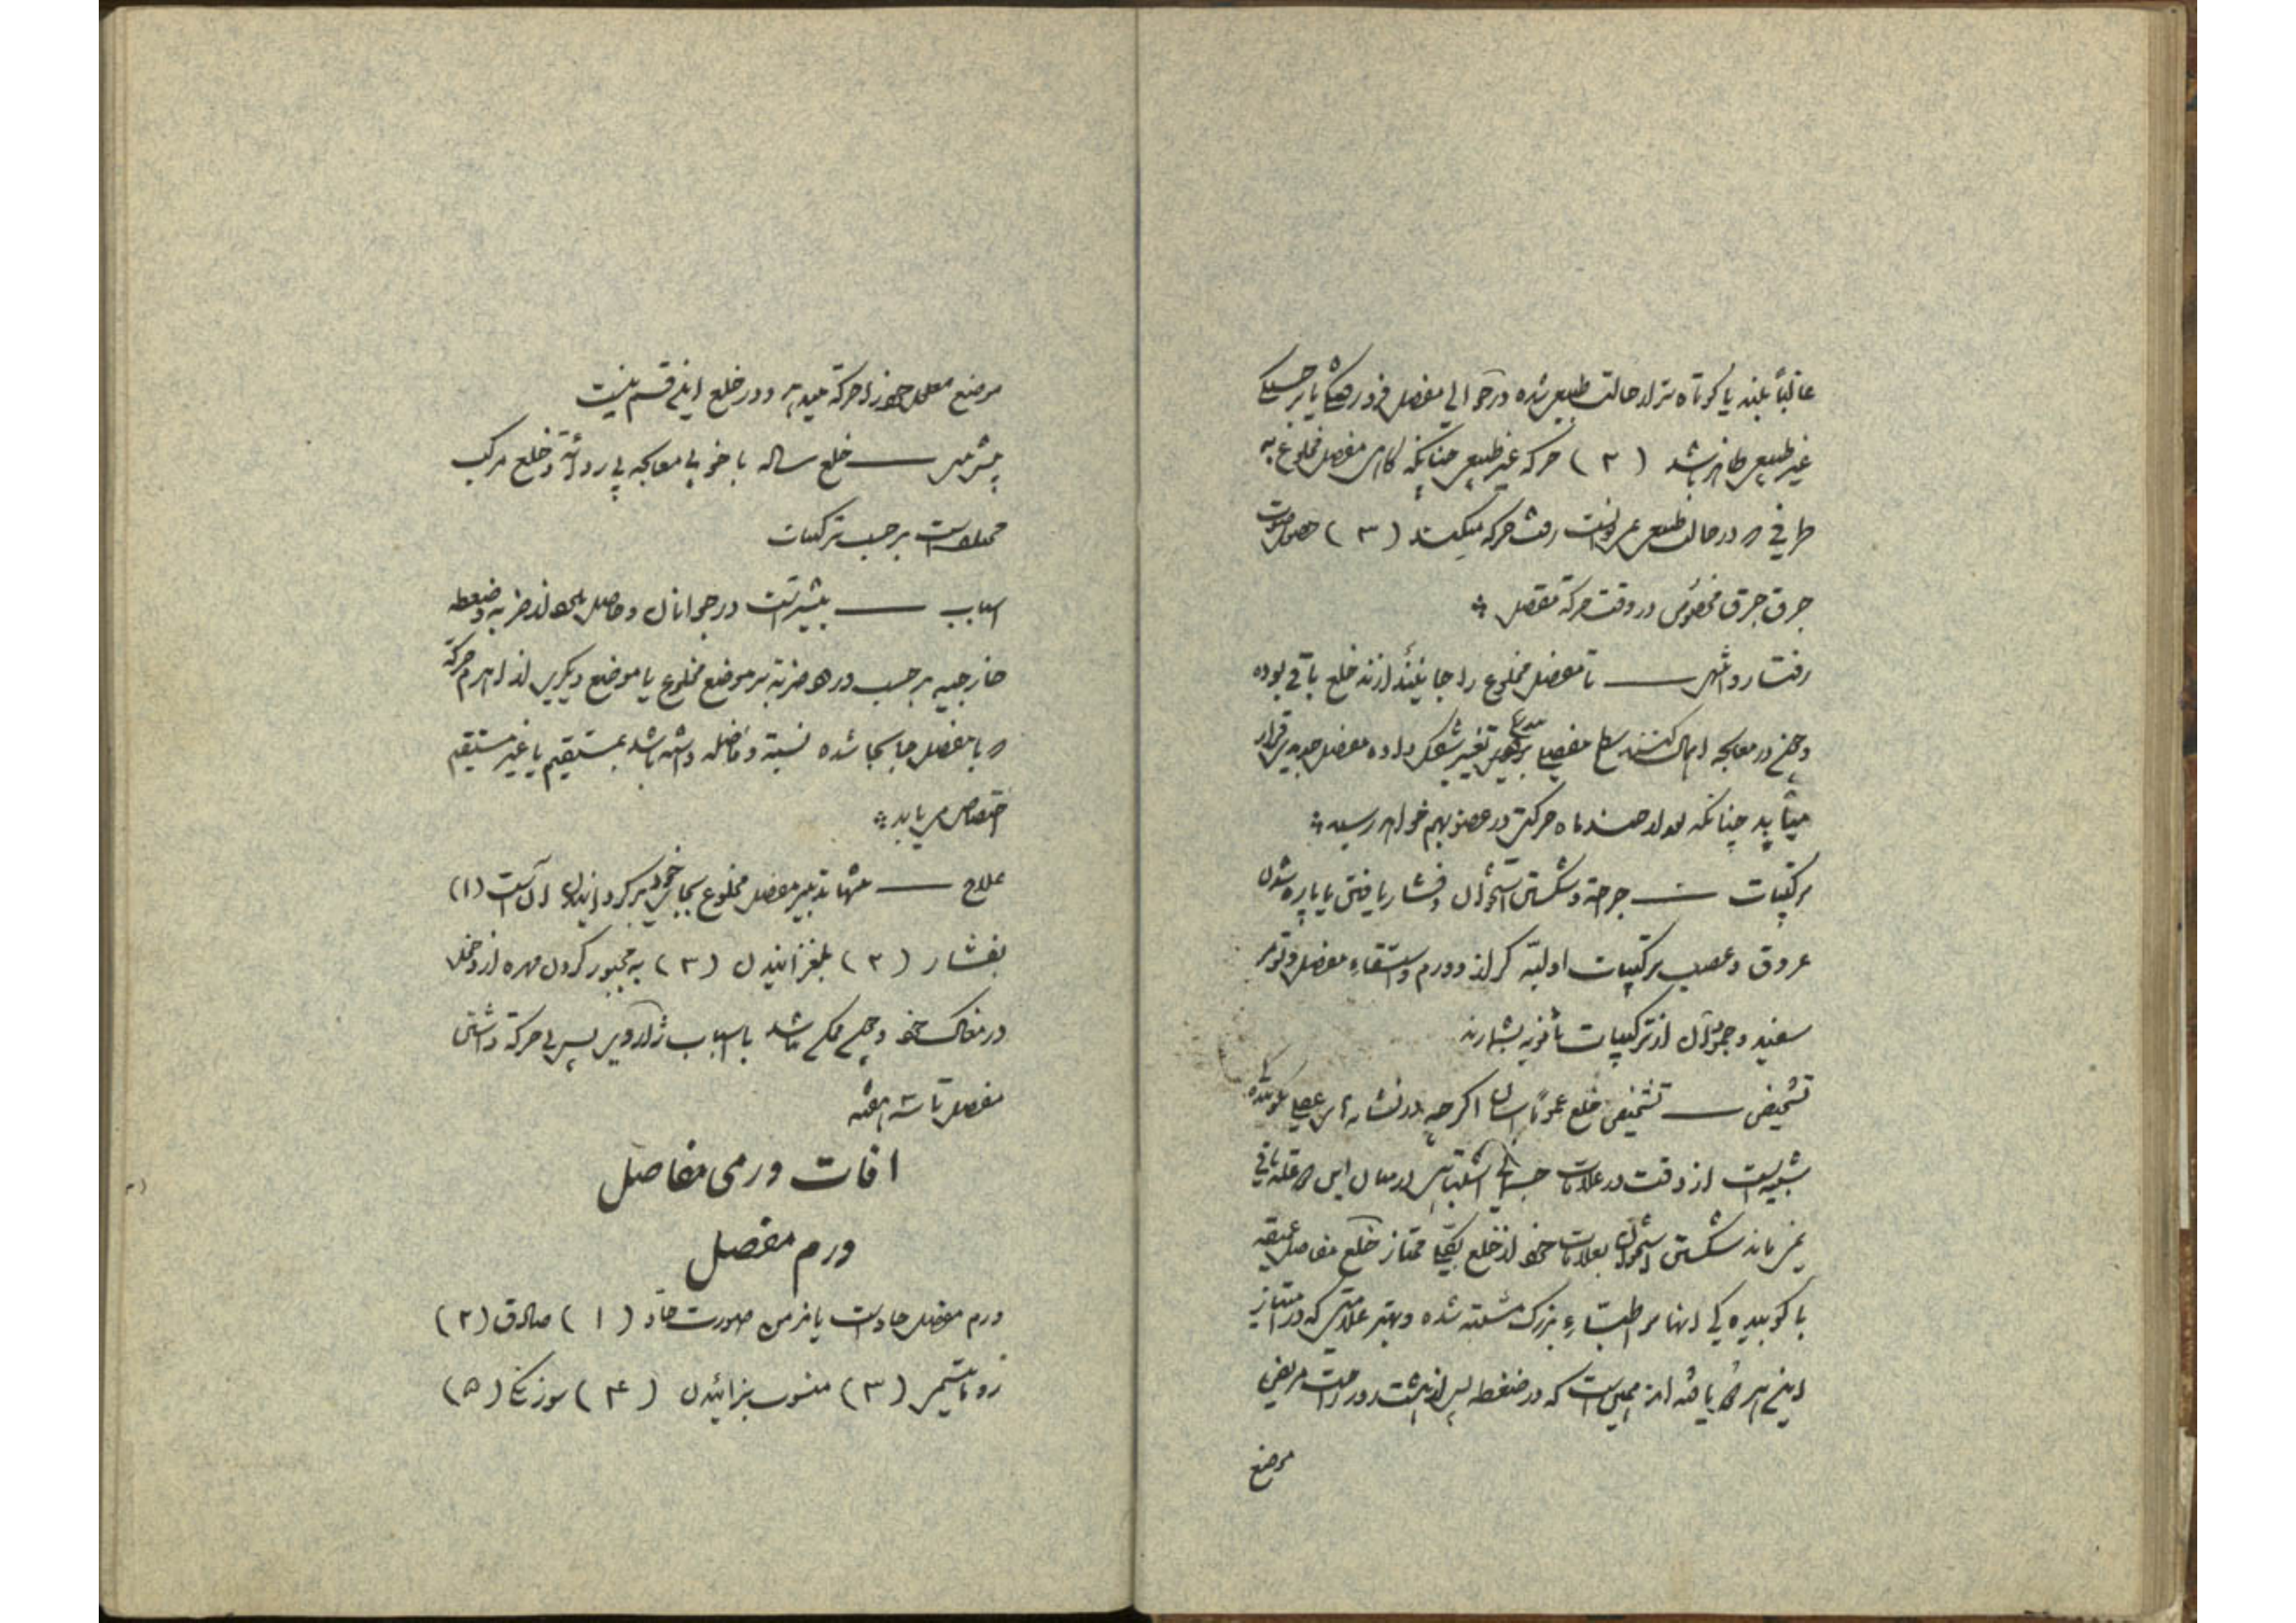 غالباً بلند یا کوتاه تر از حالت طبیعی شده در حوالی مفصل فرورفتگی یا برجستگی
غیر طبیعی ظاهر باشد (۲) حرکه غیر طبیعی چنانکه گاهی مفصل مخلوع به
طرفی که در حالت طبیعی نمی توانست رفت حرکه میکند (۳) حصول صوت
جرق جرق مخصوص در وقت حرکة مفصل
رفتار و انتهی — تا مفصل مخلوع را جا نیندازند خلع باقی بوده
در معالجه اهمال کنند سطح مفصلی تغییر شکل داده مفصل جدید برقرار
میآید چنانکه بعد از چند ماه حرکتی در عضو بهم خواهد رسید
ترکیبات — جراحة و شکستن استخوان و فشار یافتن یا پاره شدن
عروق و عصب ترکیبات اولیّه کزاز و ورم و استسقاء مفصل و تومر
سفید و جز آن از ترکیبات ثانویه بشمارند
تشخیص — تشخیص خلع عموماً آسان اگرچه در
از دقت در علامات جسمانی اشتباهی در میان این دو علة باقی
نمی ماند شکستن استخوان بعلامات خود از خلع بکلی ممتاز خلع مفاصل عمیقه
با کوبیدگی آنها بر اطبّاء بزرگ مشتبه شده و بهتر علامتی که در امتیاز
این است که در ضغطه پس از مریض
موضع
موضع معلول خود را حرکة میدهد و در خلع این قسم نیست
پیش بینی — خلع ساده با خوبی معالجه پذیرد و خلع مرکب
مختلف است بر حسب ترکیبات
اسباب — بیشتر است در جوانان و حاصل از ضربه و ضغطه
خارجیه بر حسب ورود ضربه بر موضع مخلوع یا موضع دیگری از اهرم حرکة
که با مفصل جابجا شده نسبة و فاصله داشته باشد بمستقیم یا غیر مستقیم
اختصاص می یابد
علاج — تنها تدبیر مفصل مخلوع بجای خود برگردانیدن آن است (۱)
بفشار (۲) بلغزانیدن (۳) به مجبور کردن مهره از دخول
در مغاک خود و باسباب پس بی حرکة داشتن
مفصل تا سه هفته
افات ورمی مفاصل
ورم مفصل
ورم مفصل حاد است یا مزمن صورت حاد (۱) صادق (۲)
روماتیسمی (۳) منسوب بزائیدن (۴) سوزنکی (۵)